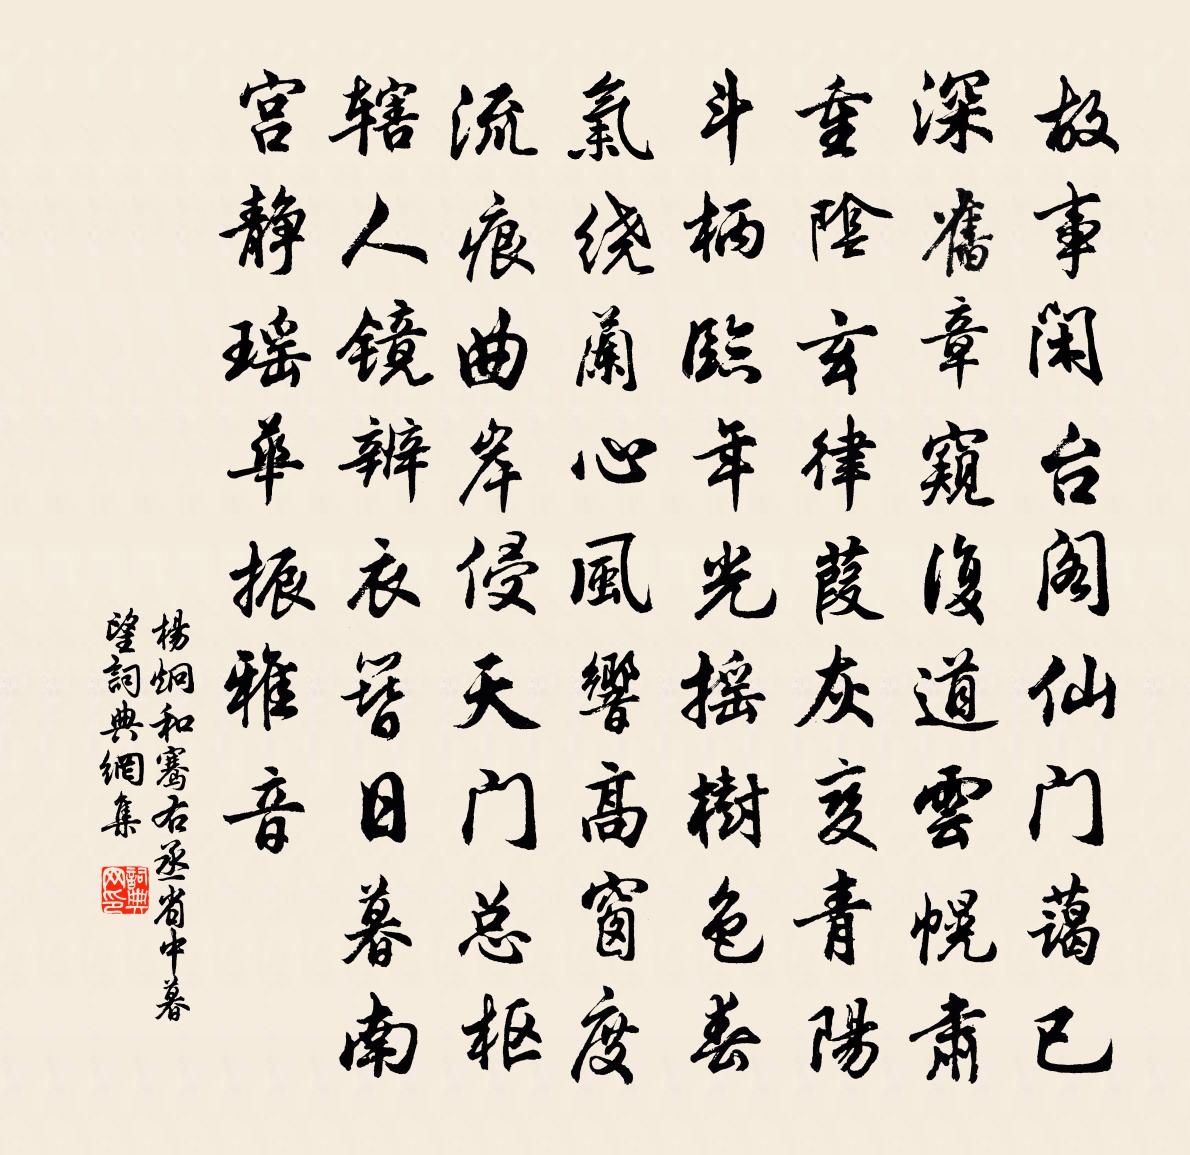 故事闲台阁仙门蔼已
深舊章窺復道雲幌肅
重陰玄律葭灰变青陽
斗柄臨年光摇樹色春
氣绕蘭心風響高窗度
流痕曲岸侵天门总枢
辖人镜辨衣簪日暮南
宫静瑶華振雅音
楊炯和騫右丞省中暮
望詞典網集
詞典网印